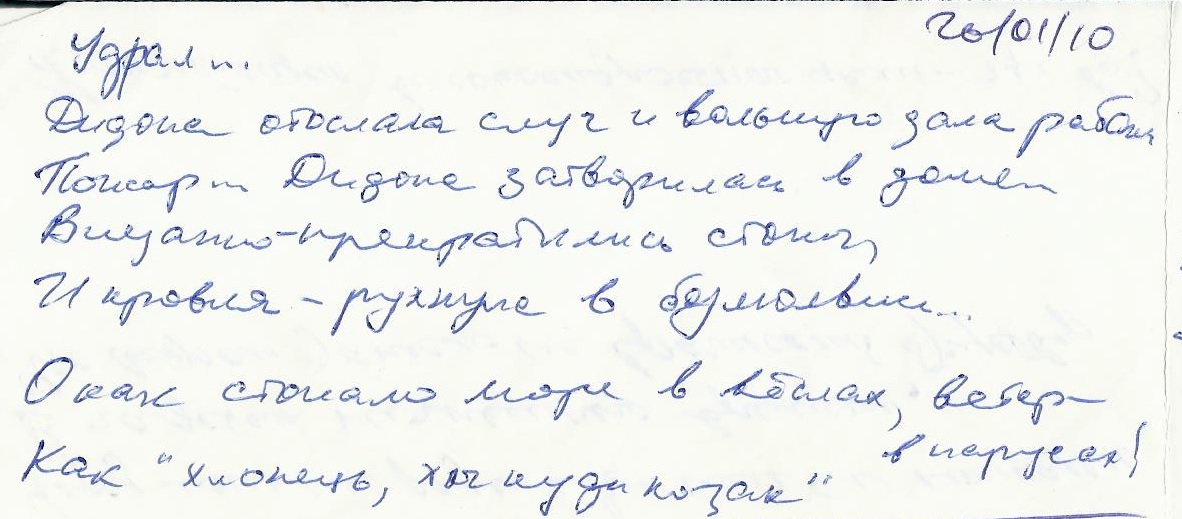 26/01/10
Удрал...
Дидона отослала слуг и вольную дала рабам
Пожар... Дидона затворилась в доме
Внезапно-прекратились стоны,
И кровля - рухнула в безмолвии...
О как стонало море в вёслах, ветер-
в парусах!
Как "хлопець, хоч куди козак"